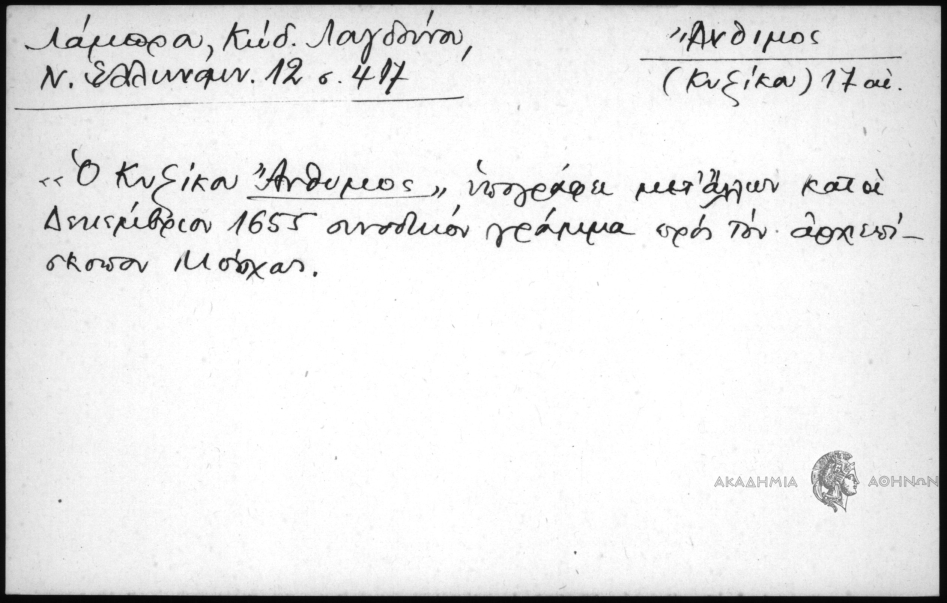 Λάμπρα, Κώδ. Λαγδίνου,
Ν. Ἑλληνομν. 12 σ. 417
Ἄνθιμος
(Κυζίκου) 17 αἰ.
«Ὁ Κυζίκου Ἄνθιμος» ὑπογράφει μετ' ἄλλων κατὰ
Δεκέμβριον 1655 συνοδικόν γράμμα πρός τόν ἀρχιεπί-
σκοπον Μόσχας.
ΑΚΑΔΗΜΙΑ ΑΘΗΝΩΝ